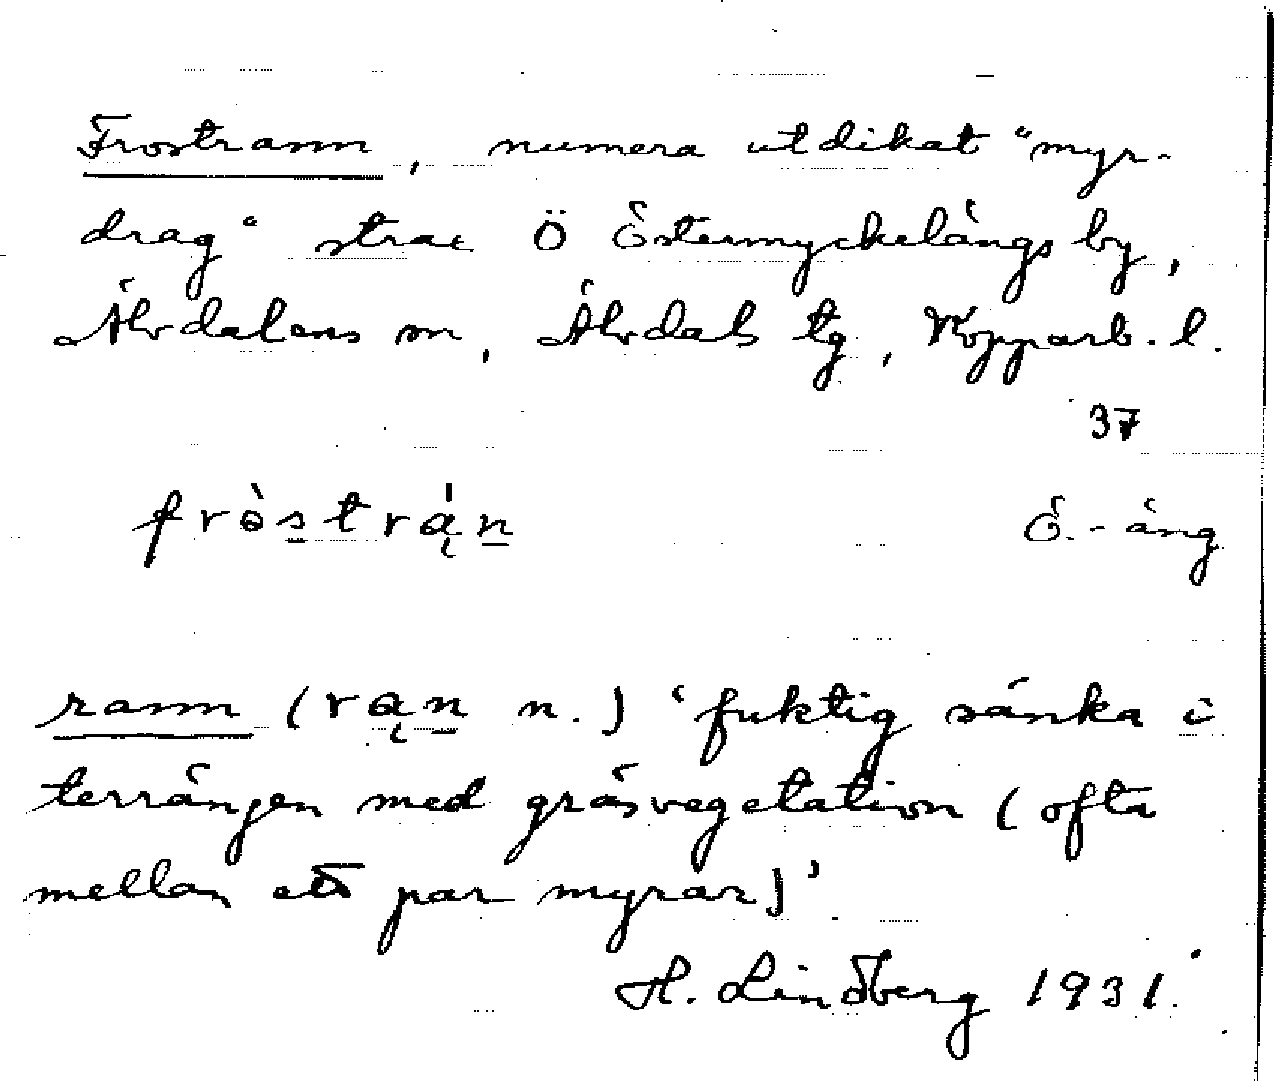 Frostrann, numera utdikat "myr-
drag" strax Ö Östermyckelängs by,
Älvdalens sn, Älvdals tg, Kopparb. l.
37
fròstrą́n Ö.-äng
rann (rąn n.) 'fuktig sänka i
terrängen med gräsvegetation (ofta
mellan ett par myrar)'.
H. Lindberg 1931.